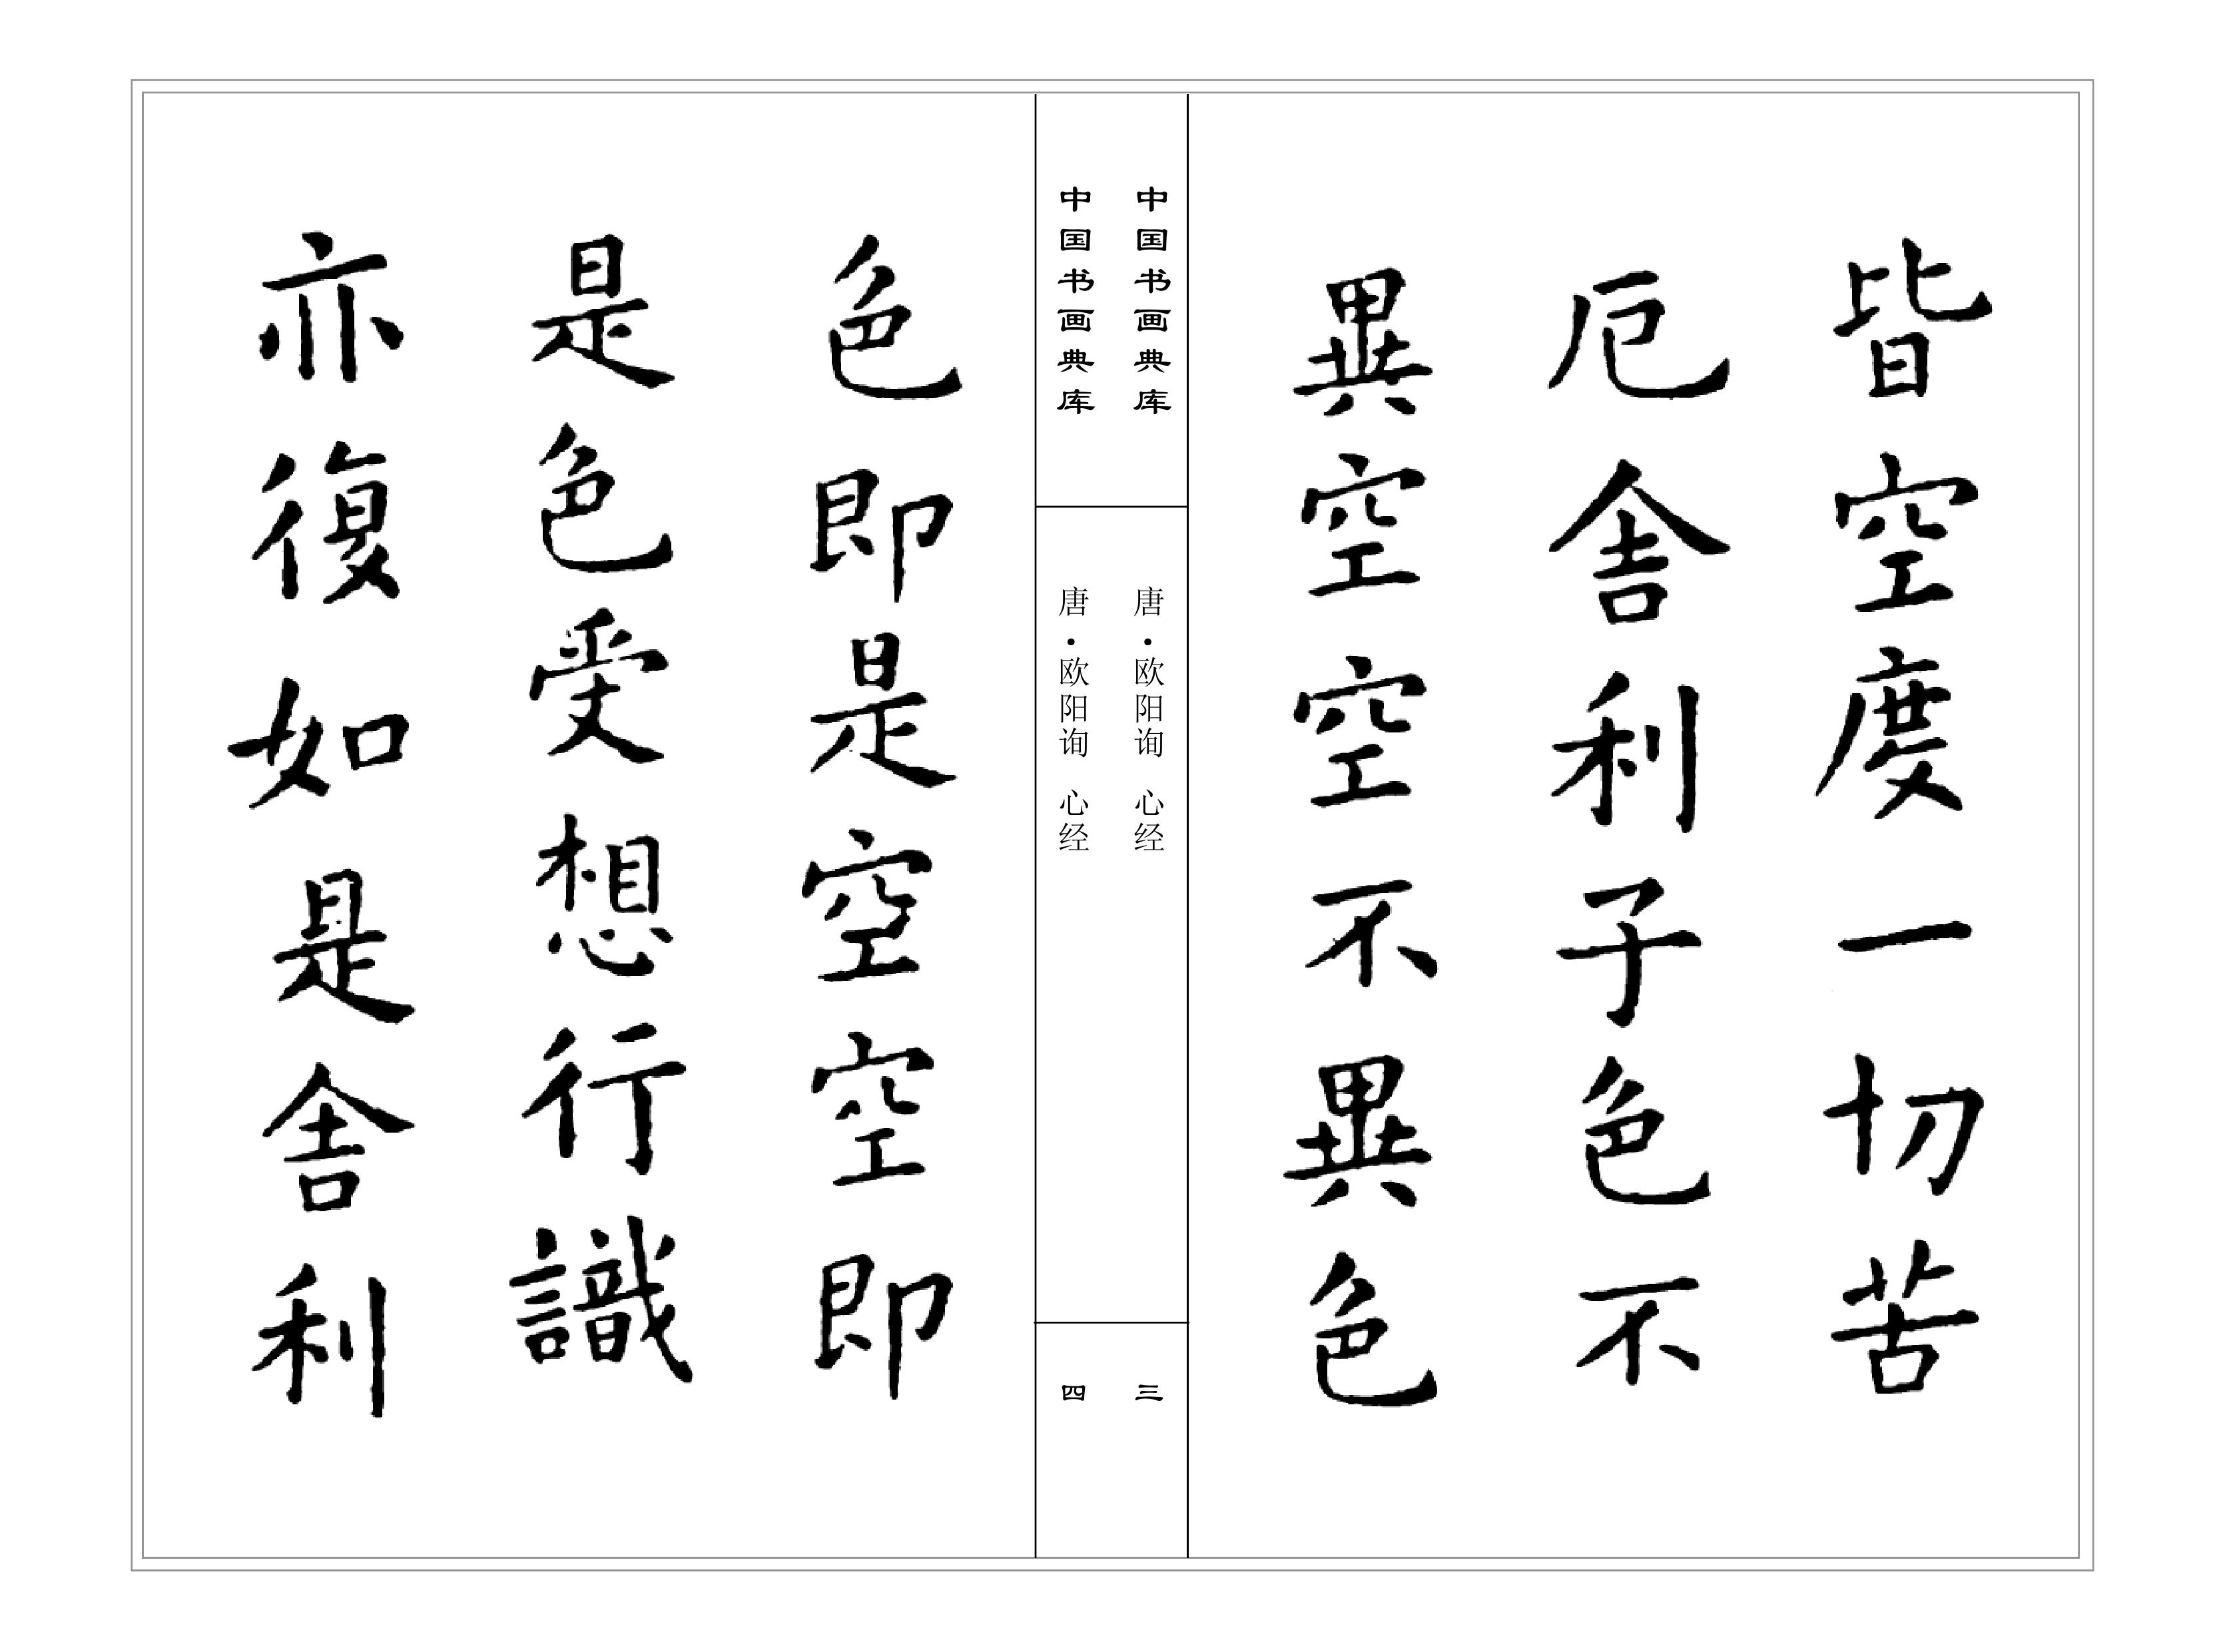 皆空度一切苦
厄舍利子色不
異空空不異色
中国书画典库
唐·欧阳询 心经
三
中国书画典库
唐·欧阳询 心经
四
色即是空空即
是色受想行識
亦復如是舍利